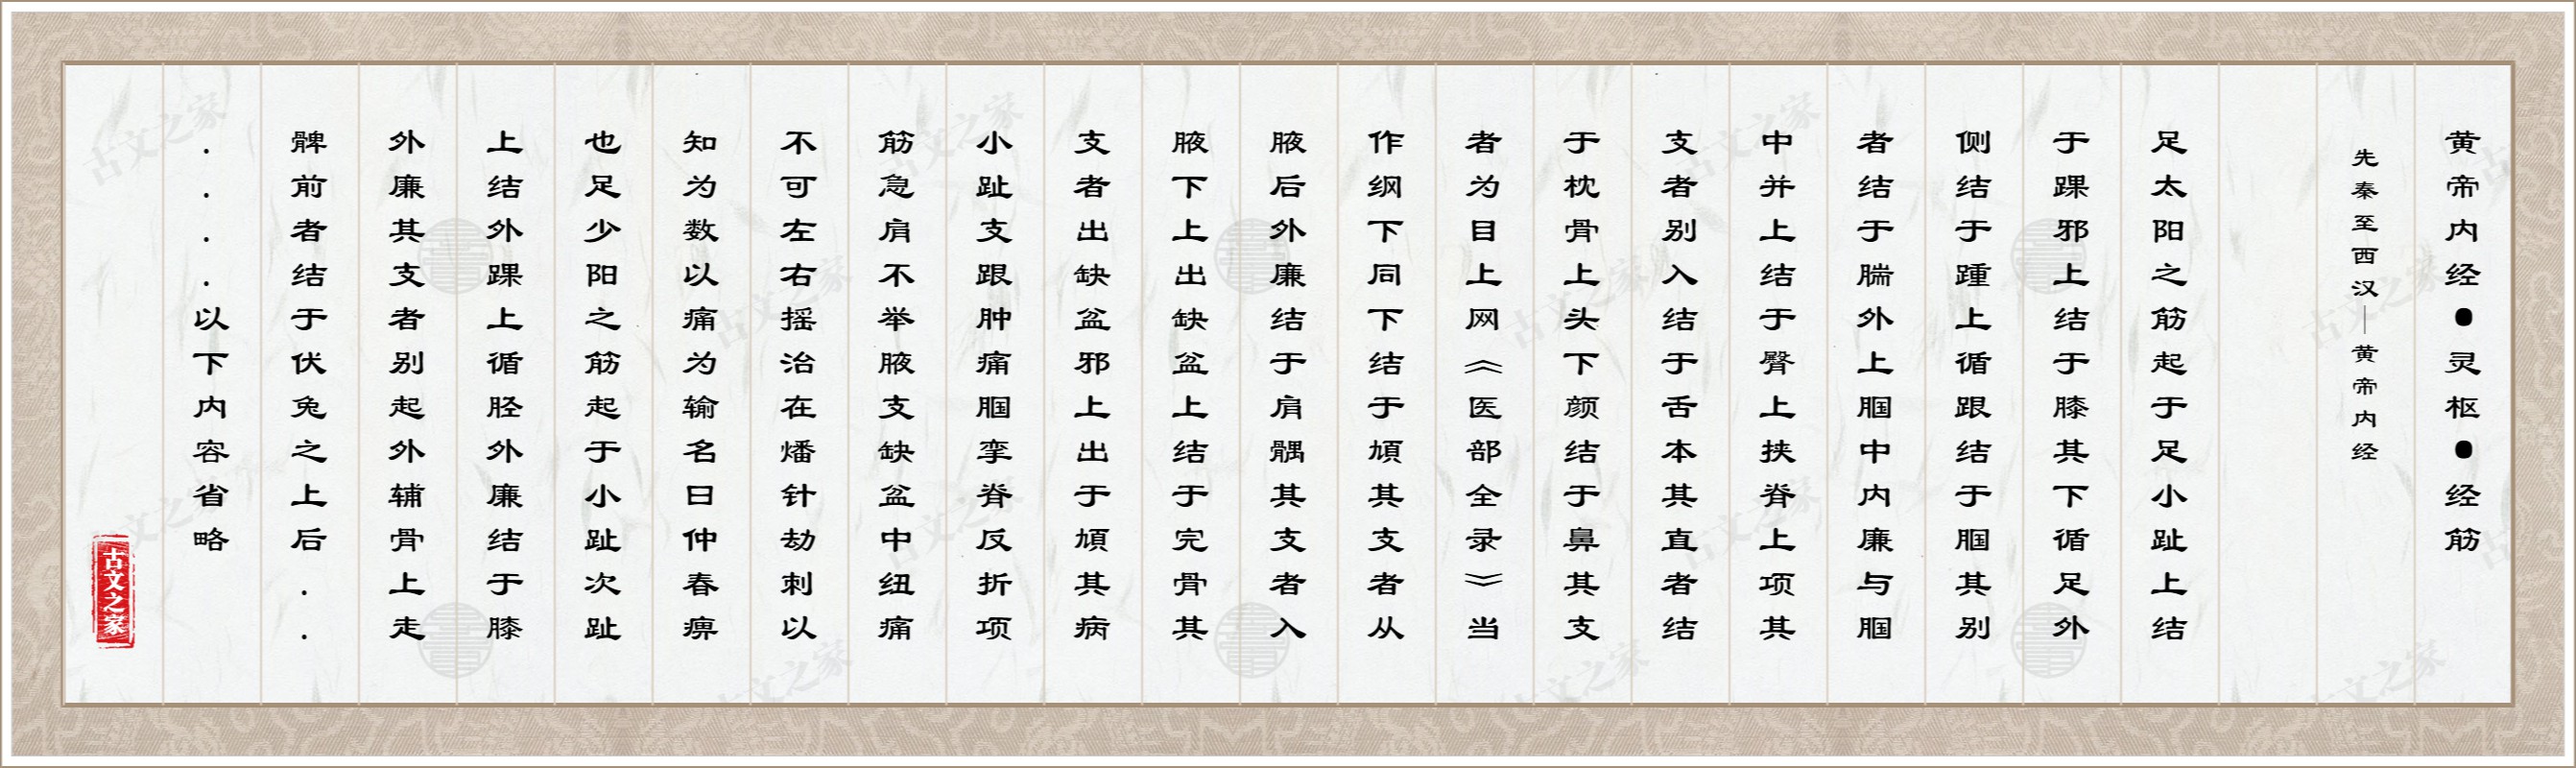 黄帝内经●灵枢●经筋
先秦至西汉｜黄帝内经
足太阳之筋起于足小趾上结
于踝邪上结于膝其下循足外
侧结于踵上循跟结于腘其别
者结于腨外上腘中内廉与腘
中并上结于臀上挟脊上项其
支者别入结于舌本其直者结
于枕骨上头下颜结于鼻其支
者为目上网《医部全录》当
作纲下同下结于頄其支者从
腋后外廉结于肩髃其支者入
腋下上出缺盆上结于完骨其
支者出缺盆邪上出于頄其病
小趾支跟肿痛腘挛脊反折项
筋急肩不举腋支缺盆中纽痛
不可左右摇治在燔针劫刺以
知为数以痛为输名曰仲春痹
也足少阳之筋起于小趾次趾
上结外踝上循胫外廉结于膝
外廉其支者别起外辅骨上走
髀前者结于伏兔之上后..
....以下内容省略
古文之家